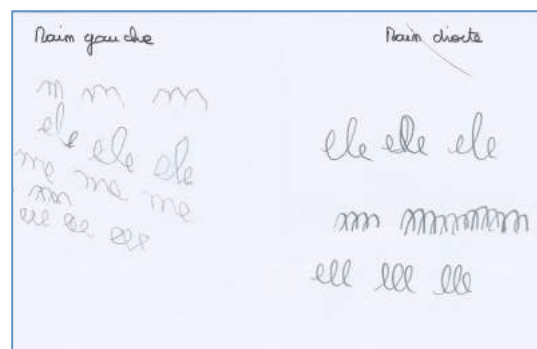 Main gauche
m m m
ele ele ele
me me me
m
ele ele elle
Main droite
ele ele ele
m mmmmm
ell lll lle